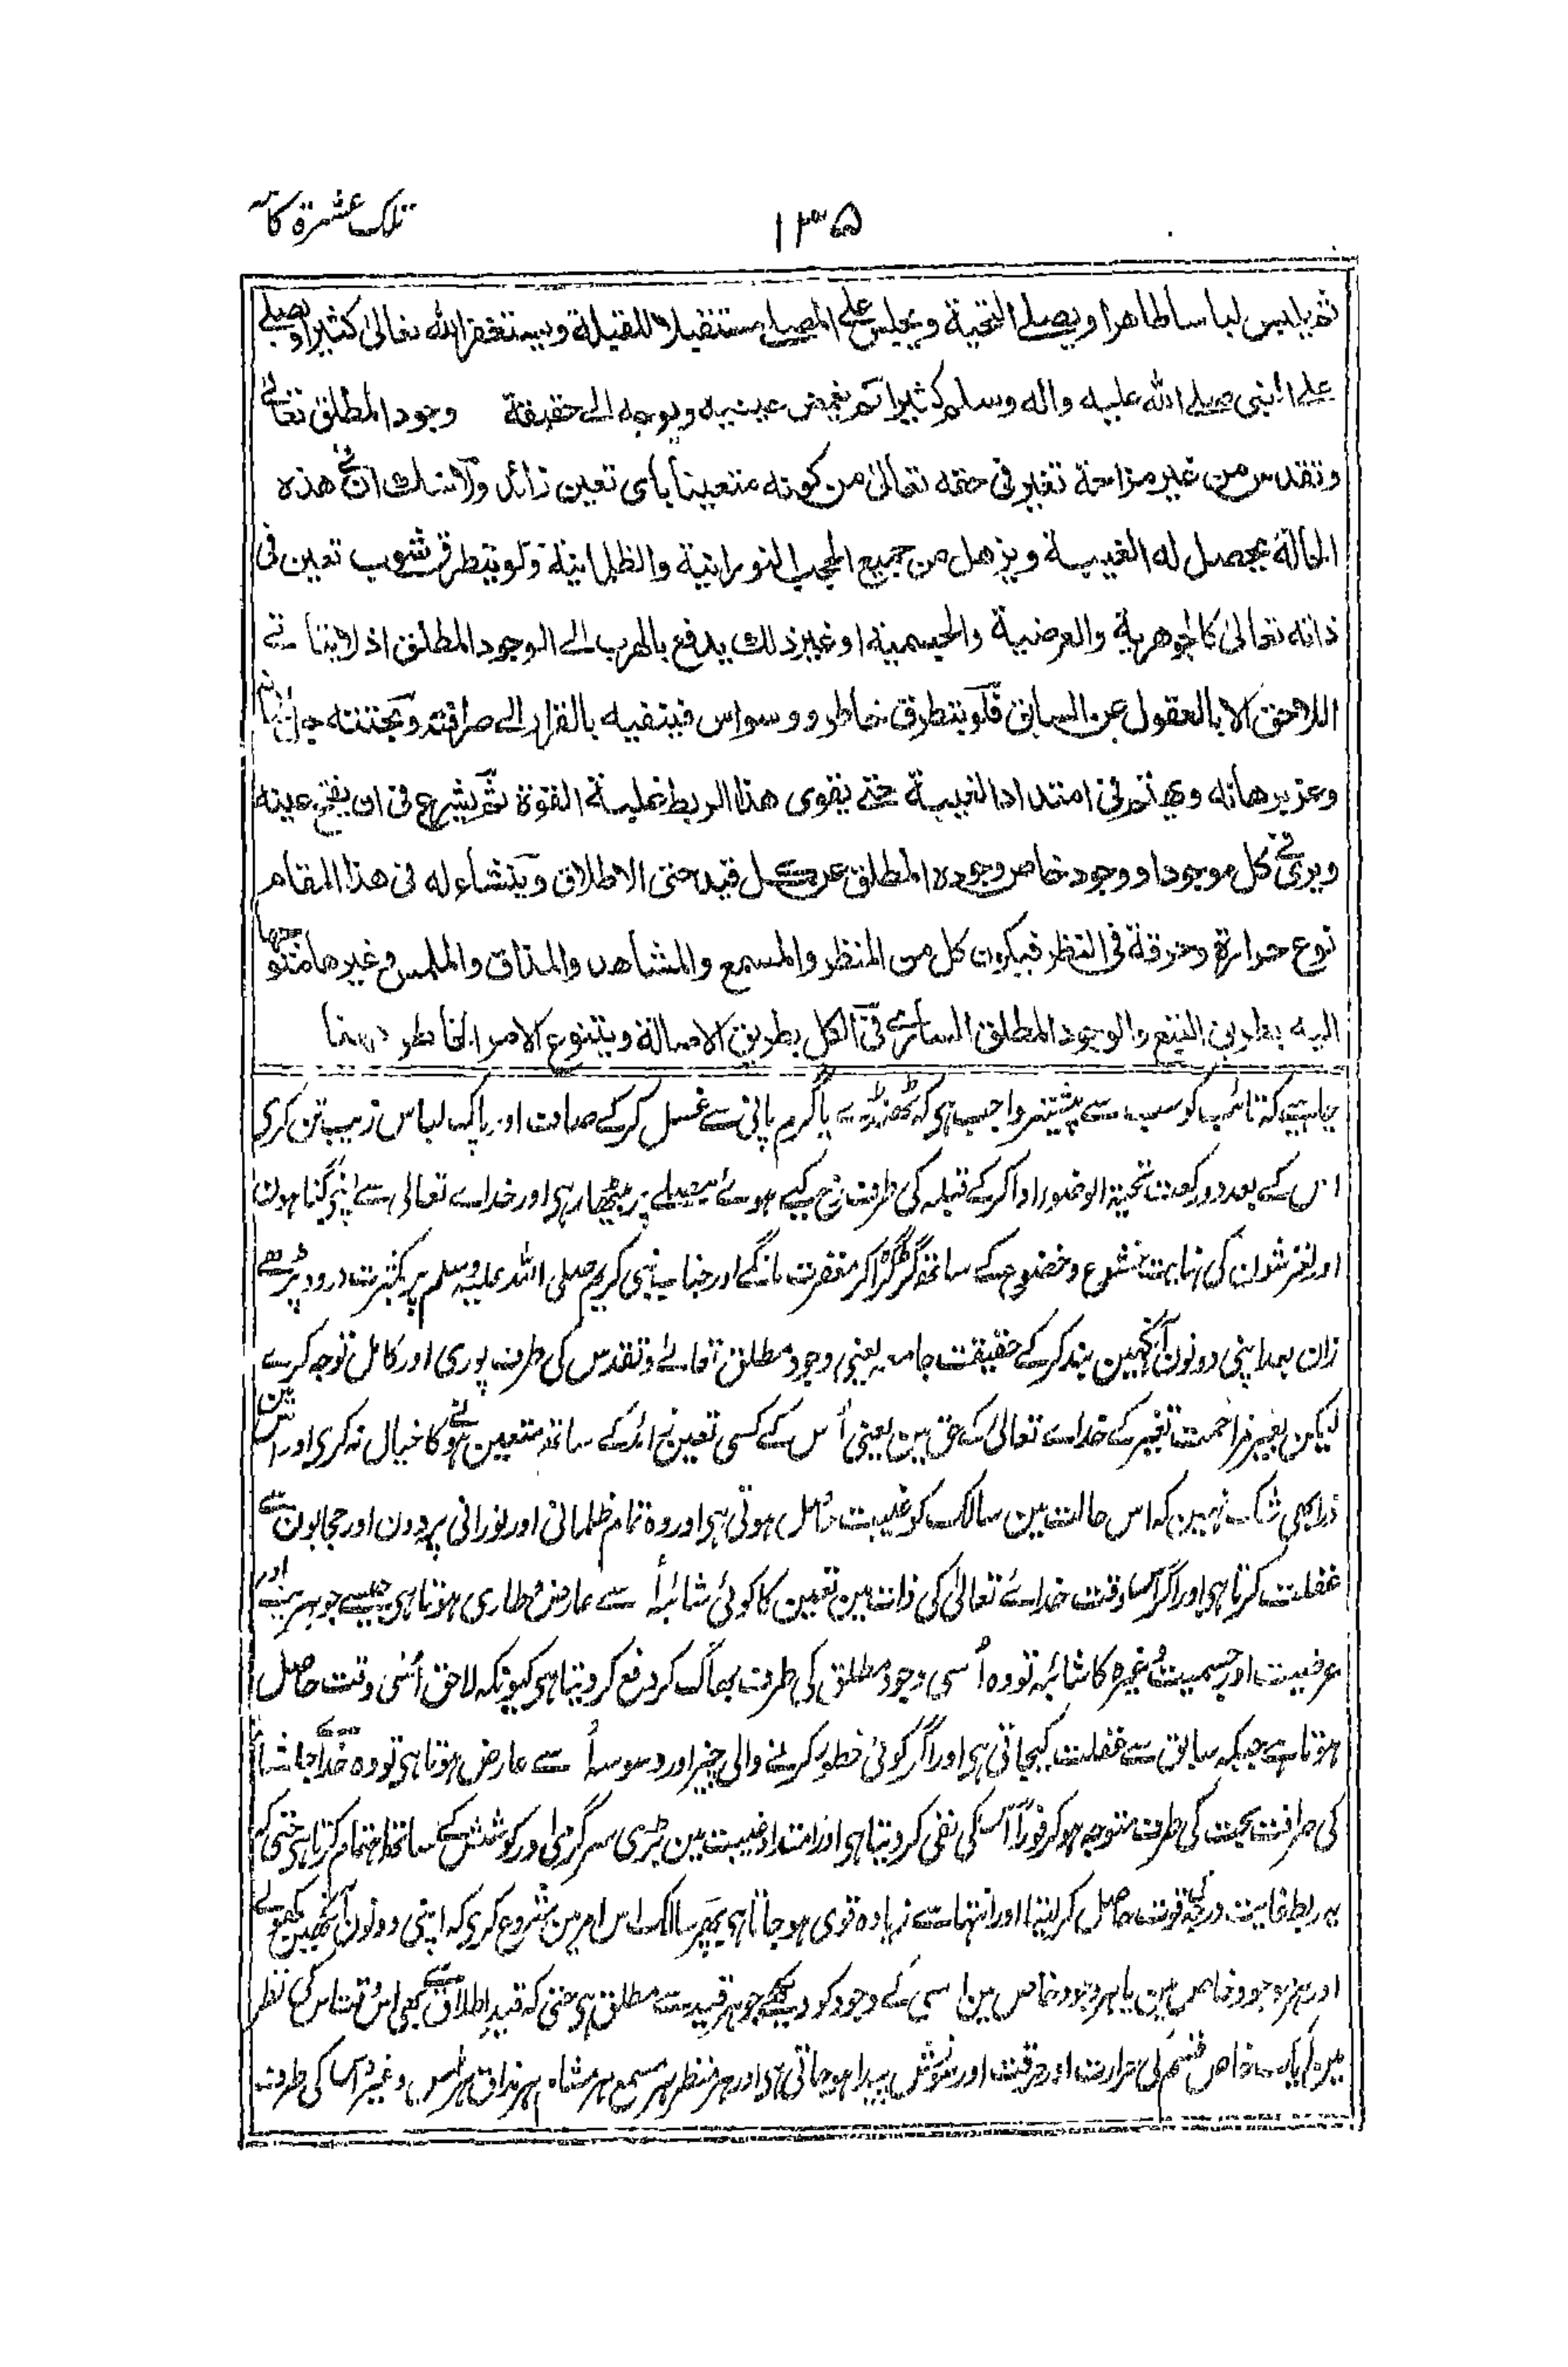 ۱۳۵
تلک عشرة کاملہ
ثم یلبس لباسا طاهرا ویصلے التحیة ویجلس علی المصلی مستقبلا للقبلة ویستغفر الله تعالیٰ کثیرا ویصلے
علے النبی صلے الله علیه واله وسلم کثیرا ثم یغمض عینیه ویوجه الی حقیقة وجود المطلق تعالے
وتقدس من غیر مزاحمة تغیر فی حقه تعالیٰ من کونه متعینا بای تعین زائد ولا شک ان فی هذه
الحالة یحصل له الغیبة ویذهل من جمیع الحجب النورانیة والظلمانیة ولو یتطرق شوب تعین فی
ذاته تعالیٰ کالجوهریة والعرضیة والجسمیة او غیر ذلک یدفع بالهرب الی الوجود المطلق اذ لا یتأتی
اللاحق الا بالعقول عن السابق فلو یتطرق خاطر ووسواس فینفیه بالفرار الی صرافته وبحتته
وعز برهانه ویهتم فی امتداد الغیبة حتی یقوی هذا الربط غلبة القوة ثم یشرع فی ان یفتح عینه
ویری فی کل موجود او وجود خاص وجوده المطلق عن کل قید حتی الاطلاق وینشاء له فی هذا المقام
نوع حرارة وحرقة فی النظر فیکون کل من المنظر والمسمع والمشاهد والمذاق والملمس وغیرها متوجها
الیه بطریق التبع والوجود المطلق الساری فی الکل بطریق الاصالة ویتنوع الامر الخاطر ههنا
چاہیے کہ تائب کو سب سے پیشتر واجب ہی کہ ٹھنڈے یا گرم پانی سے غسل کرکے صاف اور پاک لباس زیب تن کری
اس کے بعد دو رکعت تحیۃ الوضوء ادا کرکے قبلہ کی طرف رخ کیے ہوئے مصلے پر بیٹھا رہی اور خداے تعالی سے اپنی گناہون
اور لغزشون کی نہایت خشوع وخضوع کے ساتھ گڑگڑا کر مغفرت مانگے اور جناب نبی کریم صلی الله علیہ وسلم پر بکثرت درود پڑھے
زان بعد اپنی دونون آنکھین بند کرکے حقیقت جامعہ یعنی وجود مطلق تعالے وتقدس کی طرف پوری اور کامل توجہ کرے
لیکن بغیر مزاحمت تغیر کے خداے تعالیٰ کے حق مین یعنی اُس کے کسی تعین زائد کے ساتھ متعین ہونے کا خیال نہ کری اور اس مین
ذرا بھی شک نہین کہ اس حالت مین سالک کو غیبت حاصل ہوتی ہی اور وہ تمام ظلمانی اور نورانی پردون اور حجابون سے
غفلت کرتا ہی اور اگر اسوقت خداے تعالیٰ کی ذات مین تعین کا کوئی شائبہ اُسے عارض وطاری ہوتا ہی جیسے جوہریت اور
عرضیت اور جسمیت وغیرہ کا شائبہ تو وہ اُسی وجود مطلق کی طرف بھاگ کر دفع کر دیتا ہی کیونکہ لاحق اُسی وقت حاصل
ہوتا ہے جبکہ سابق سے غفلت کیجاتی ہی اور اگر کوئی خطور کرنے والی چیز اور وسوسہ اُسے عارض ہوتا ہی تو وہ
کی صرافت بحت کی طرف متوجہ ہوکر فوراً اُسکی نفی کر دیتا ہی اور امتداد غیبت مین بڑی سرگرمی اور کوشش کے ساتھ اہتمام کرتا ہی حتی کہ
یہ ربط غایت درجہ کی قوت حاصل کر لیتا اور انتہا سے زیادہ قوی ہو جاتا ہی پھر سالک اس امر مین شروع کری کہ اپنی دونون آنکھین کھولے
اور ہر موجود خاص مین یا ہر وجود خاص مین اسی کے وجود کو دیکھے جو ہر قید سے مطلق ہی حتی کہ قید اطلاق سے بھی اسوقت اس کی نظر
مین ایک خاص قسم کی حرارت اور حرقت اور سوزش پیدا ہو جاتی ہی اور ہر منظر ہر مسمع ہر مشاہد ہر مذاق ہر ملمس وغیرہ اسکی طرف